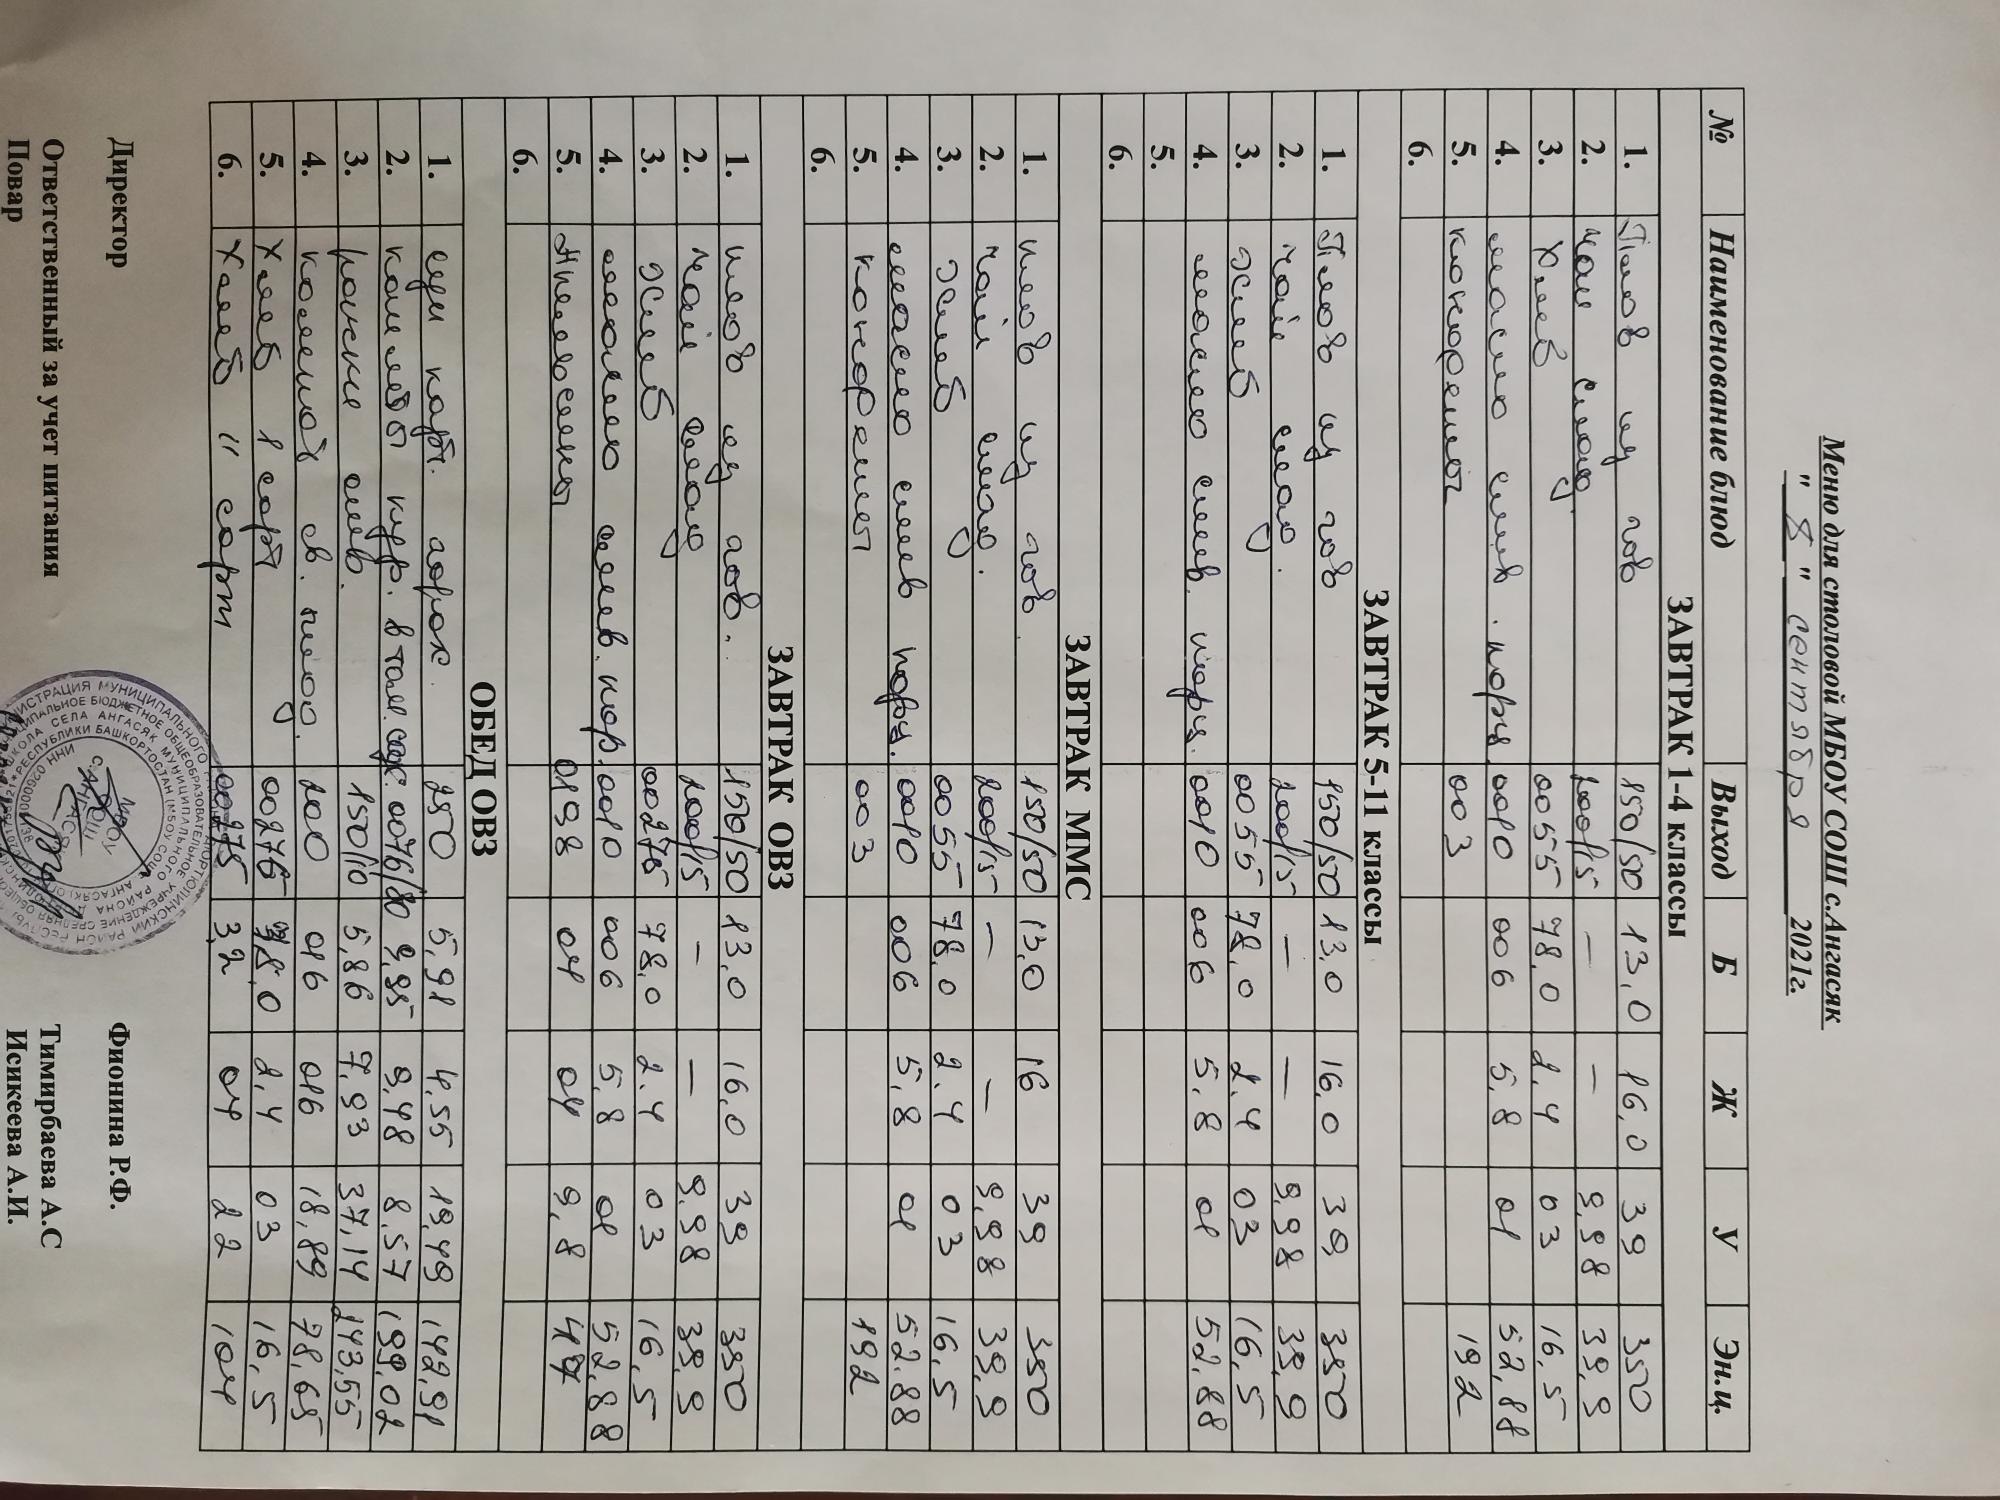 Меню для столовой МБОУ СОШ с.Ангасяк
" 8 " сентября 2021г.
№ Наименование блюд Выход Б Ж У Эн.ц.
ЗАВТРАК 1-4 классы
1. Плов из гов 150/50 13,0 16,0 39 350
2. Чай слад 200/15 — — 9,98 39,9
3. Хлеб 0055 78,0 2.4 03 16,5
4. масло слив. порц 0010 006 5,8 01 52,88
5. конфеты 003 192
6.
ЗАВТРАК 5-11 классы
1. Плов из гов 150/50 13,0 16,0 39 350
2. чай слад. 200/15 — — 9,98 39,9
3. хлеб 0055 78,0 2.4 03 16,5
4. масло слив. порц. 0010 006 5.8 01 52,88
5.
6.
ЗАВТРАК ММС
1. плов из гов. 150/50 13,0 16 39 350
2. чай слад. 200/15 — — 9,98 39,9
3. хлеб 0055 78,0 2.4 03 16,5
4. масло слив порц. 0010 006 5,8 01 52,88
5. конфеты 003 192
6.
ЗАВТРАК ОВЗ
1. плов из гов. 150/50 13,0 16,0 39 350
2. чай слад 200/15 — — 9,98 39,9
3. хлеб 00275 78,0 2.4 03 16,5
4. масло слив. пор. 0010 006 5,8 01 52,88
5. Апельсины 0198 04 04 9,8 47
6.
ОБЕД ОВЗ
1. суп карт. горох. 250 5,91 4,55 19,49 142,91
2. котлеты кур. в том. соус 0076/80 9,95 9,48 8,57 199,02
3. рожки отв. 150/10 5,86 7,93 37,14 243,55
4. компот св. плод. 200 016 016 18,89 78,65
5. Хлеб 1 сорт 00275 78,0 2,4 03 16,5
6. Хлеб II сорт 00275 3,2 04 22 104
Директор Фионина Р.Ф.
Ответственный за учет питания Тимирбаева А.С
Повар Исикеева А.И.